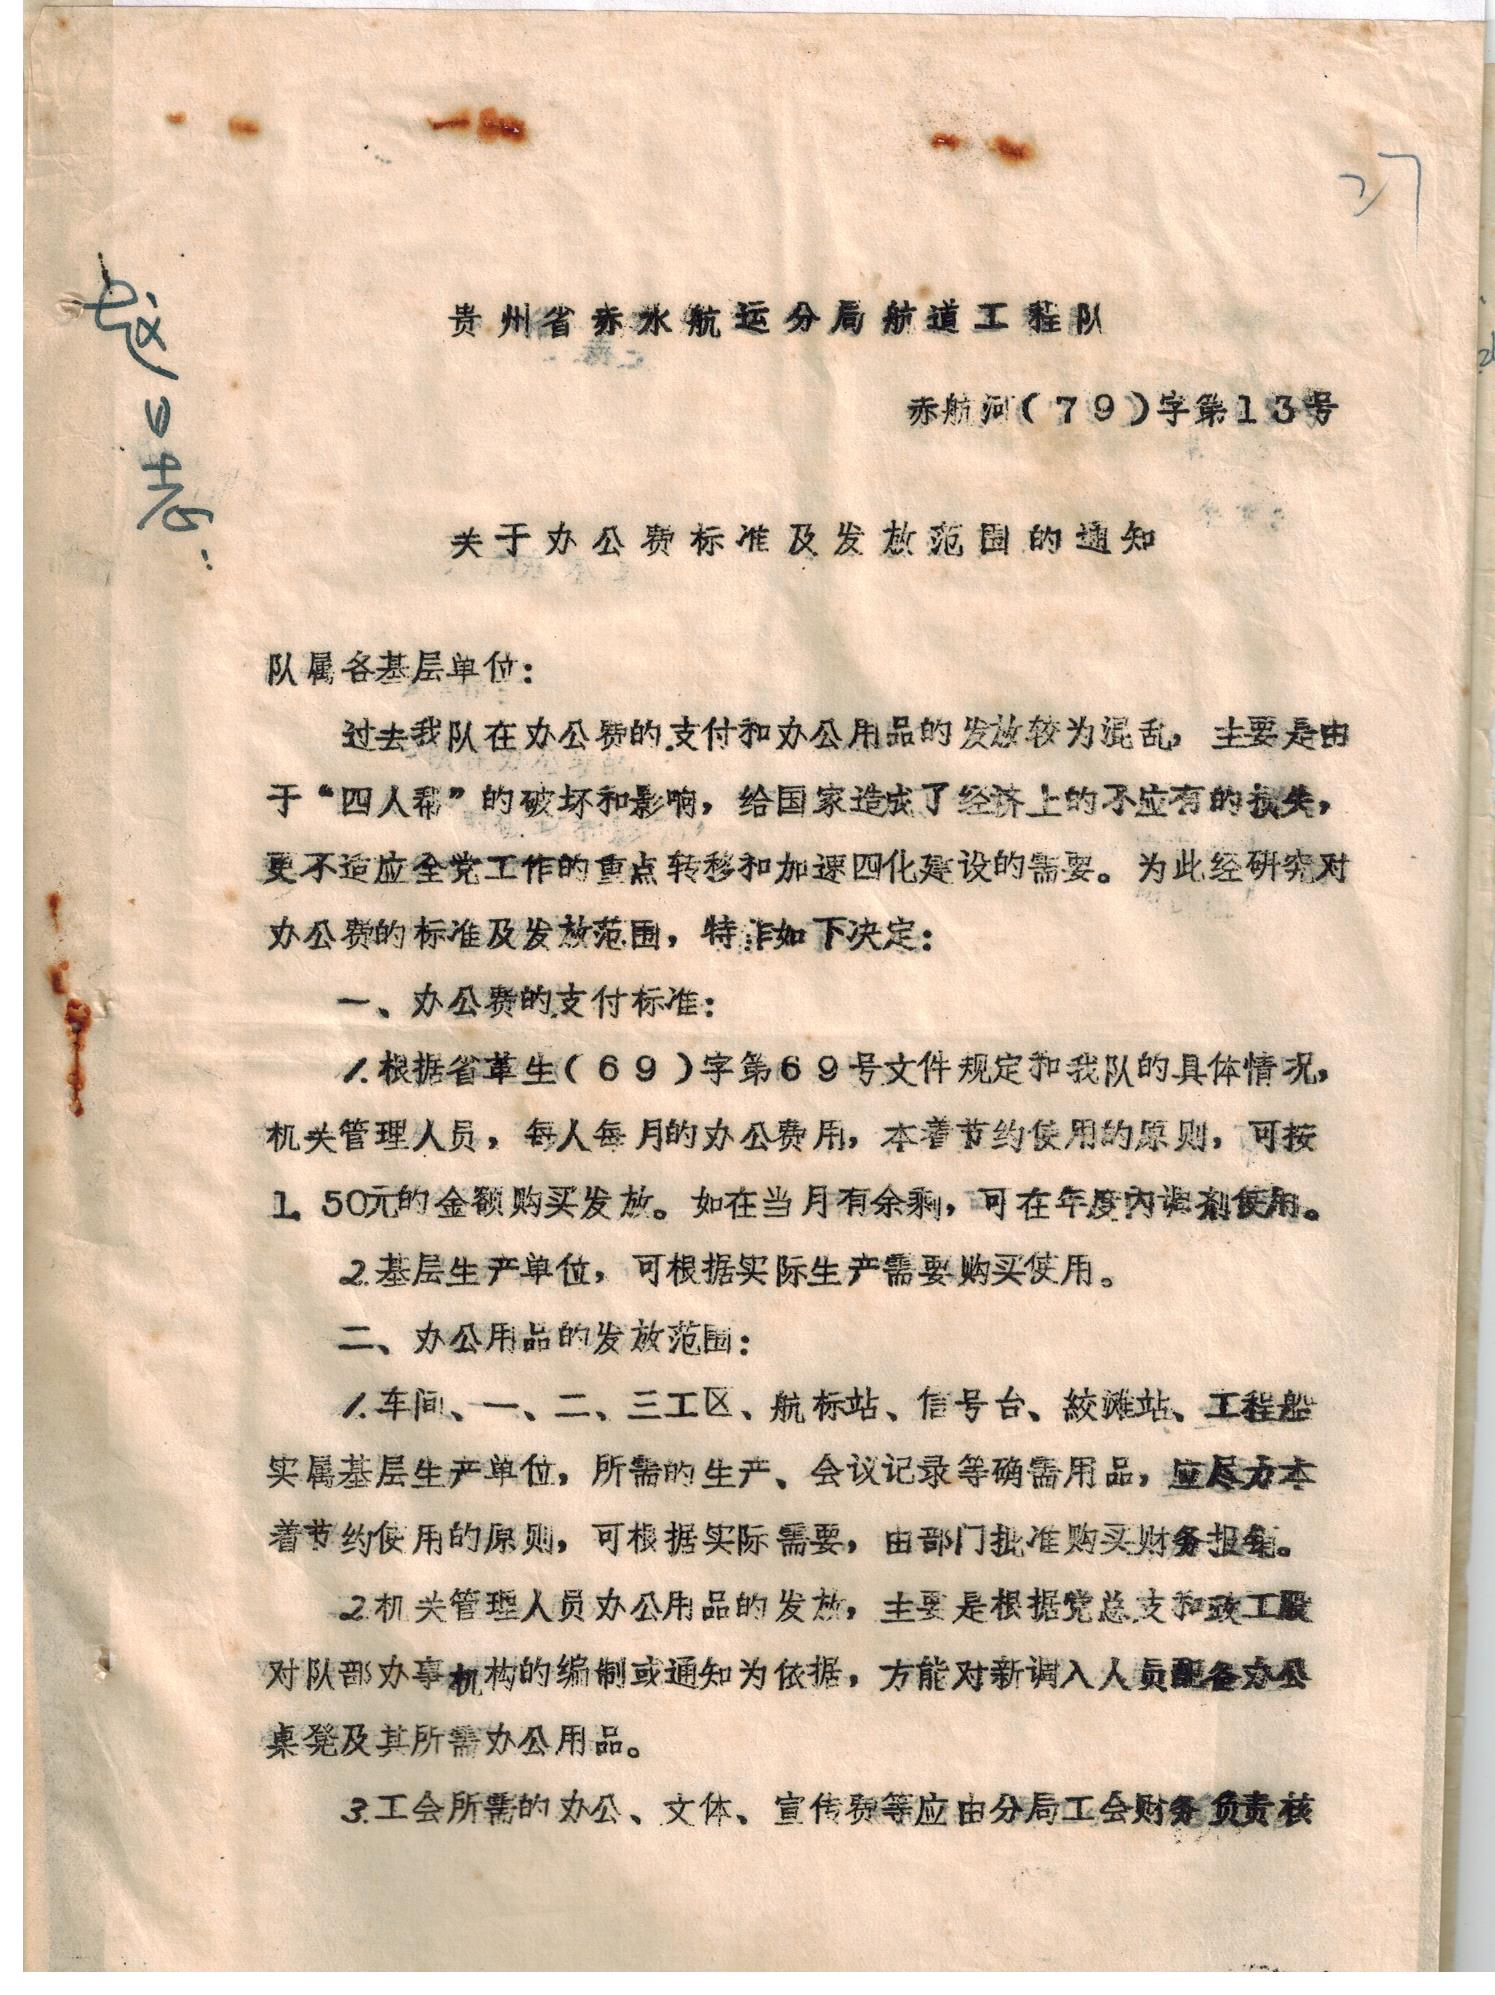 27
贵州省赤水航运分局航道工程队
赤航河(79)字第13号
关于办公费标准及发放范围的通知
队属各基层单位：
过去我队在办公费的支付和办公用品的发放较为混乱，主要是由
于“四人帮”的破坏和影响，给国家造成了经济上的不应有的损失，
更不适应全党工作的重点转移和加速四化建设的需要。为此经研究对
办公费的标准及发放范围，特作如下决定：
一、办公费的支付标准：
1.根据省革生(69)字第69号文件规定和我队的具体情况，
机关管理人员，每人每月的办公费用，本着节约使用的原则，可按
1.50元的金额购买发放。如在当月有余剩，可在年度内调剂使用。
2.基层生产单位，可根据实际生产需要购买使用。
二、办公用品的发放范围：
1.车间、一、二、三工区、航标站、信号台、绞滩站、工程船
实属基层生产单位，所需的生产、会议记录等确需用品，应尽力本
着节约使用的原则，可根据实际需要，由部门批准购买财务报销。
2.机关管理人员办公用品的发放，主要是根据党总支和政工股
对队部办事机构的编制或通知为依据，方能对新调入人员配备办公
桌凳及其所需办公用品。
3.工会所需的办公、文体、宣传费等应由分局工会财务负责核